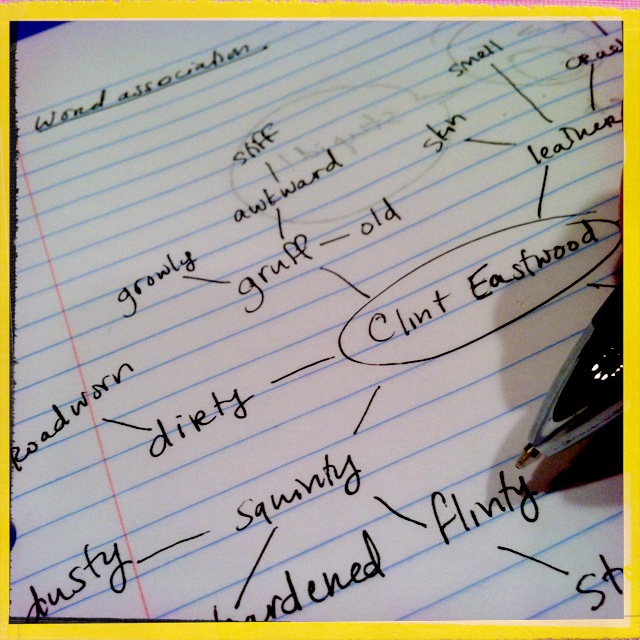 Word association
smell
stiff
skin
leather
awkward
old
gruff
growly
Clint Eastwood
roadworn
dirty
squinty
flinty
dusty
hardened